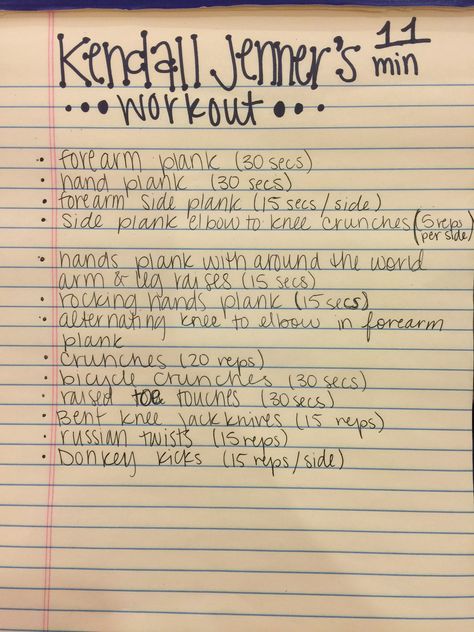 Kendall Jenner's 11 min
•••workout•••
• forearm plank (30 secs)
• hand plank (30 secs)
• forearm side plank (15 secs/side)
• side plank elbow to knee crunches (5 reps per side)
• hands plank with around the world
arm & leg raises (15 secs)
• rocking hands plank (15 secs)
• alternating knee to elbow in forearm
plank
• crunches (20 reps)
• bicycle crunches (30 secs)
• raised toe touches (30 secs)
• Bent knee jackknives (15 reps)
• russian twists (15 reps)
• Donkey kicks (15 reps/side)